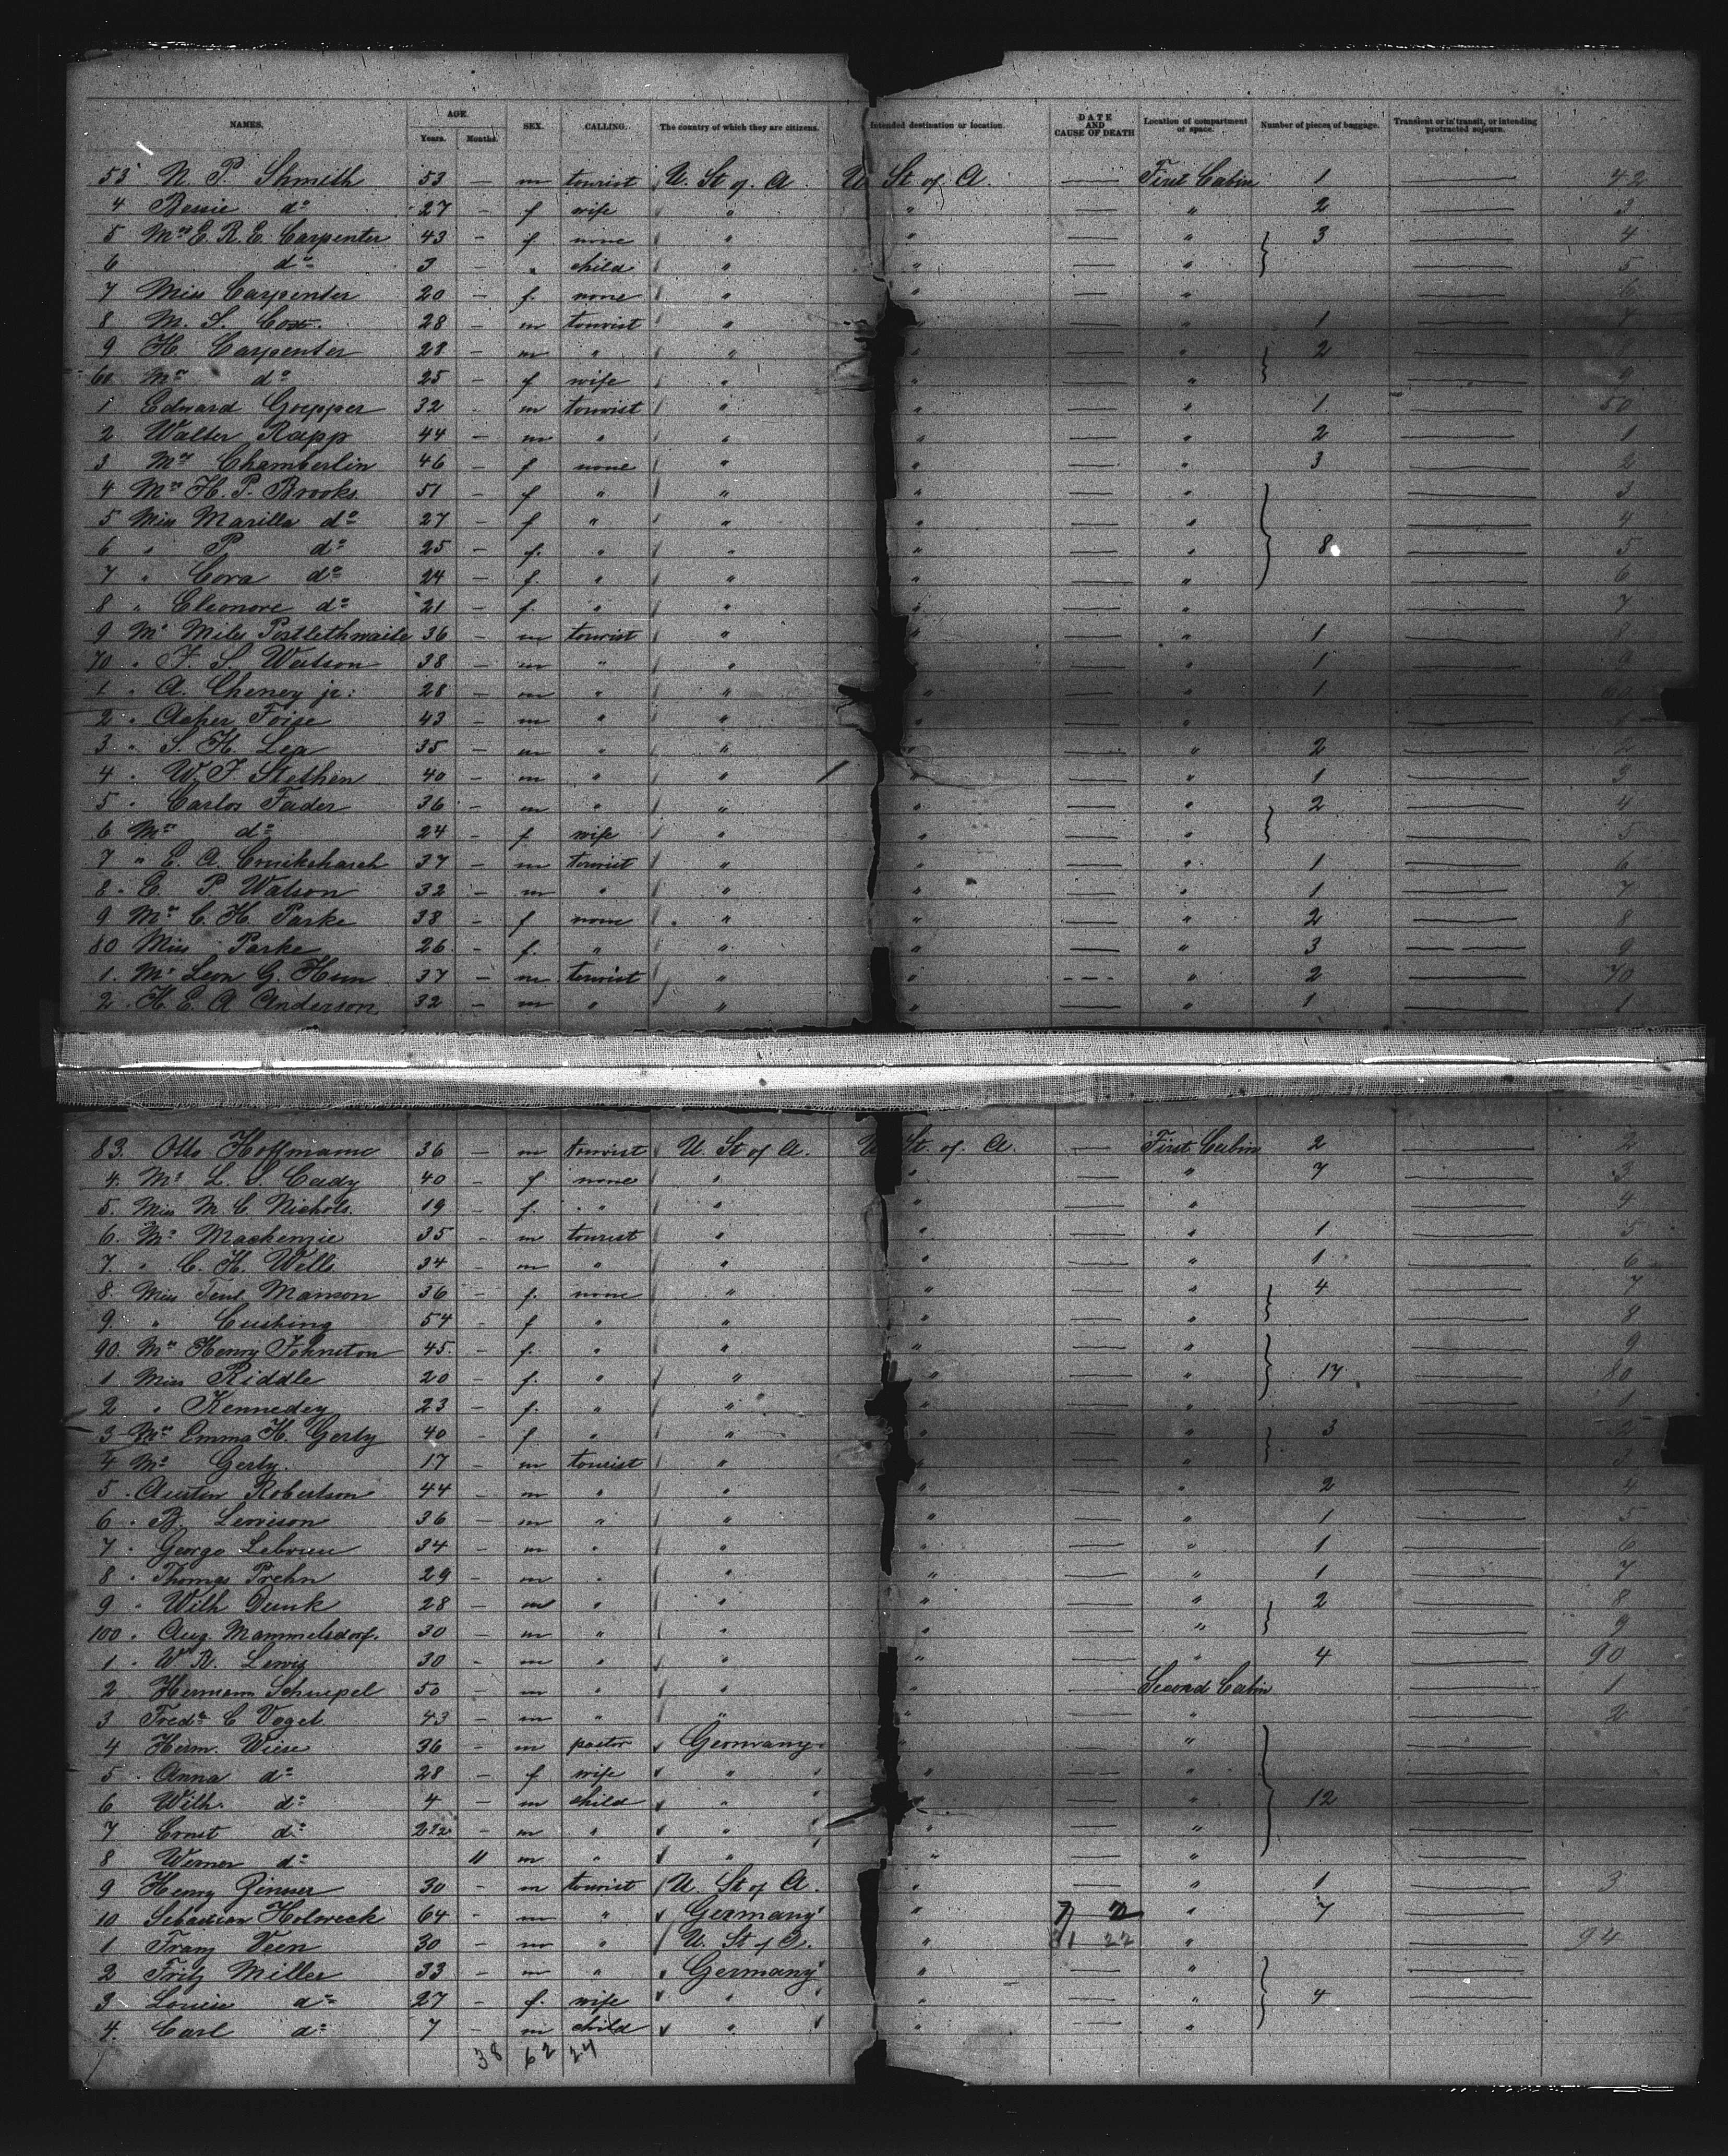 NAMES. AGE. Years. Months. SEX. CALLING. The country of which they are citizens. Intended destination or location. DATE AND CAUSE OF DEATH Location of compartment or space. Number of pieces of baggage. Transient or in transit, or intending protracted sojourn.
53 N. P. Shmith 53 — m tourist U. St of A. U St of A. — First Cabin 1 — 42
4 Bessie do 27 — f wife " " — " 2 — 3
5 Mrs E. R. E. Carpenter 43 — f none " " — " 3 — 4
6 do 3 — " child " " — " — 5
7 Miss Carpenter 20 — f. none " " — " — 6
8 M. S. Cox. 28 — m tourist " " — " 1 — 7
9 H. Carpenter 28 — m " " " — " 2 — 8
60 Mrs do 25 — f wife " " — " — 9
1 Edward Goepper 32 — m tourist " " — " 1 — 50
2 Walter Rapp 44 — m " " " — " 2 — 1
3 Mrs Chamberlin 46 — f none " " — " 3 — 2
4 Mrs H. P. Brooks 51 — f " " " — " — 3
5 Miss Marilla do 27 — f " " " — " — 4
6 " P. do 25 — f. " " " — " 8 — 5
7 " Cora do 24 — f. " " " — " — 6
8 " Eleonore do 21 — f. " " " — " — 7
9 Mr Miles Postlethwaite 36 — m tourist " " — " 1 — 8
70 " F. S. Watson 38 — m " " " — " 1 — 9
1 " A. Cheney jr: 28 — m " " " — " 1 — 60
2 " 43 — m " " " — " — 1
3 " S. H. Lea 35 — m " " " — " 2 — 2
4 " W. F. Stethen 40 — m " " " — " 1 — 3
5 " Carlos Fader 36 — m " " " — " 2 — 4
6 Mrs do 24 — f wife " " — " — 5
7 " E. A. 37 — m tourist " " — " 1 — 6
8 " C. P Watson 32 — m " " " — " 1 — 7
9 Mrs C. H. Parke 38 — f none " " — " 2 — 8
80 Miss Parke 26 — f. " " " — " 3 — 9
1. Mr Leon G. Hun 37 — m tourist " " — " 2 — 70
2 " H. E. A Anderson 32 — m " " " — " 1 — 1
83. Otto Hoffmann 36 — m tourist U. St of A. U St. of. A. — First Cabin 2 — 2
4. Mrs L. S. Cady 40 — f none " " — " 7 — 3
5. Miss M. C. Nichols. 19 — f. " " " — " — 4
6. Mr Mackenzie 35 — m tourist " " — " 1 — 5
7. " C. H. Wells 34 — m " " " — " 1 — 6
8. Miss Manson 36 — f. none " " — " 4 — 7
9. " Cushing 54 — f " " " — " — 8
90. Mrs Henry Johnston 45. — f. " " " — " — 9
1 Miss Riddle 20 — f. " " " — " 17 — 80
2 " Kennedey 23 — f. " " " — " — 1
3 Mrs Emma H. Gerly 40 — f " " " — " 3 — 2
4 Mr Gerly. 17 — m tourist " " — " — 3
5 " Austin Robertson 44 — m " " " — " 2 — 4
6 " B. Lewison 36 — m " " " — " 1 — 5
7 " George 34 — m " " " — " 1 — 6
8 " Thomas Prehn 29 — m " " " — " 1 — 7
9 " Wilh 28 — m " " " — " 2 — 8
100 " Aug. Mammelsdorf. 30 — m " " " — " — 9
1 " W. R. Lewis 30 — m " " " — " 4 — 90
2 Hermann Schnipel 50 — m " " " — Second Cabin — 1
3 Fredk C Vogel 43 — m " " " — " — 2
4 Herm. Wiese 36 — m pastor Germany " — " —
5 Anna do 28 — f wife " " — " —
6 Wilh. do 4 — m child " " — " 12 —
7 Ernst do m " " " — " —
8 Werner do 11 m " " " — " —
9 Henry Zinner 30 — m tourist U. St of A. " — " 1 — 3
10 Sebastian Holweck 64 — m " Germany " 7 2 " 7 —
1 Franz Veen 30 — m " U St of A. " 31 22 " — 94
2 Fritz Miller 33 — m " Germany " — " —
3 Louise do 27 — f. wife " " — " 4 —
4. Carl do 7 — m child " " — " —
38 62 24